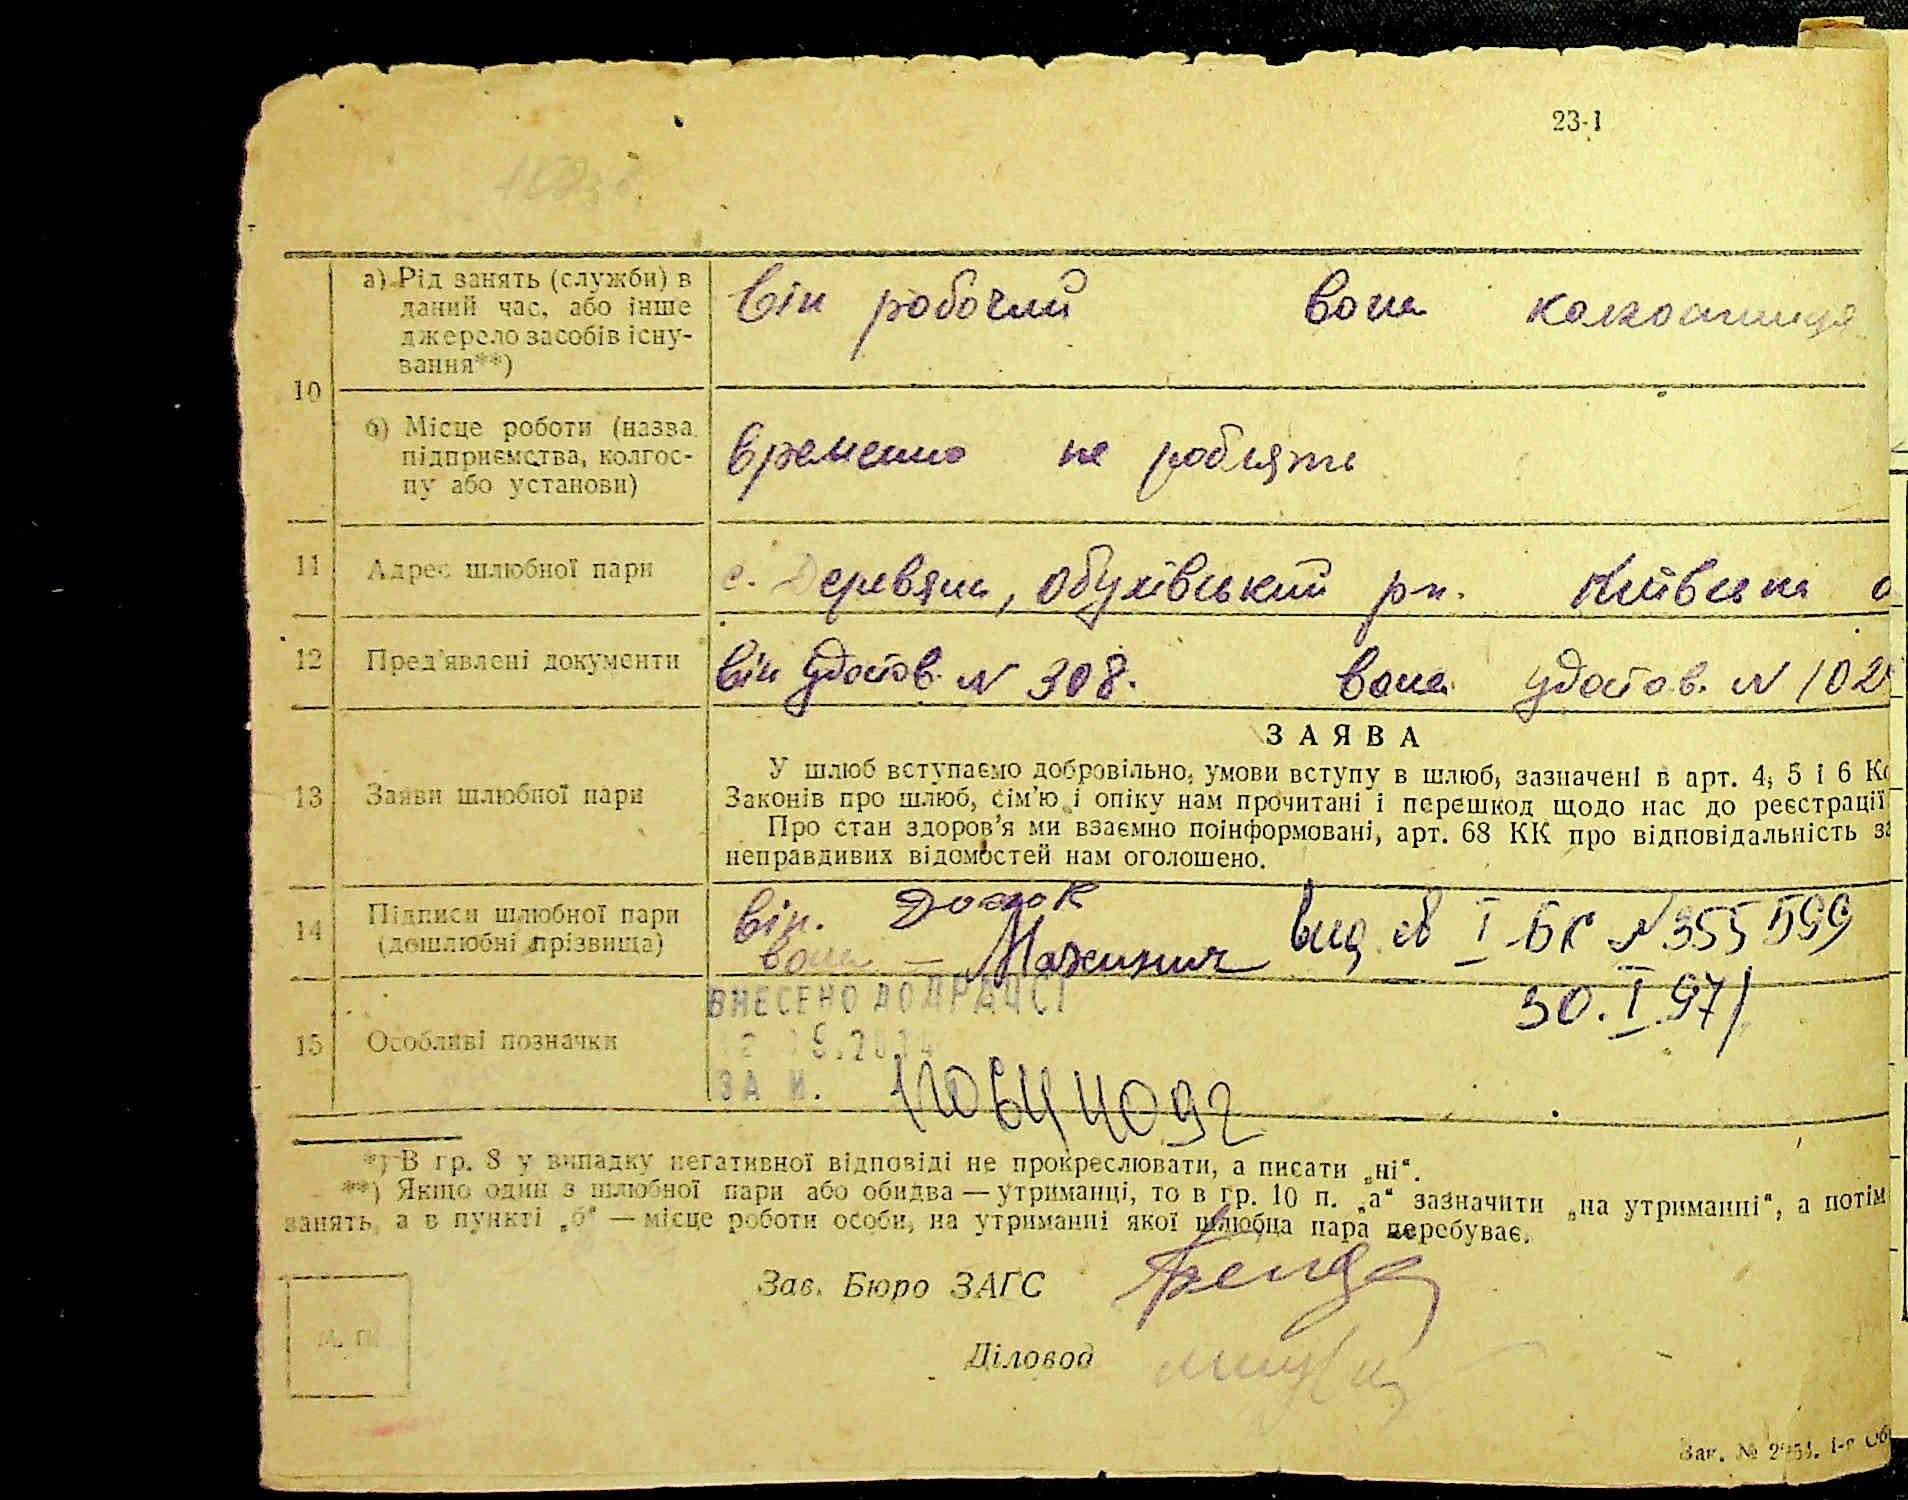 23-1
10
а) Рід занять (служби) в
даний час, або інше
джерело засобів існу-
вання**)
він робочий вона колгоспниця
б) Місце роботи (назва
підприємства, колгос-
пу або установи)
временно не роблять
11 Адрес шлюбної пари с. Деревяна, Обухівський рн. Київська о
12 Пред'явлені документи він удостов. N 308. вона удостов. N 102
13 Заяви шлюбної пари
ЗАЯВА
У шлюб вступаємо добровільно, умови вступу в шлюб, зазначені в арт. 4, 5 і 6 Ко
Законів про шлюб, сім'ю і опіку нам прочитані і перешкод щодо нас до реєстрації
Про стан здоров'я ми взаємно поінформовані, арт. 68 КК про відповідальність за
неправдивих відомостей нам оголошено.
14 Підписи шлюбної пари
(дошлюбні прізвища)
він.
вона —
вид. св I БК N 355599
30.I.971
15 Особливі позначки
ВНЕСЕНО ДО ДРАЦСГ
ЗА N.
*) В гр. 8 у випадку негативної відповіді не прокреслювати, а писати „ні“.
**) Якщо один з шлюбної пари або обидва — утриманці, то в гр. 10 п. „а“ зазначити „на утриманні“, а потім
занять, а в пункті „б“ — місце роботи особи, на утриманні якої шлюбна пара перебуває.
Зав. Бюро ЗАГС
Діловод
М. П.
Зак. №